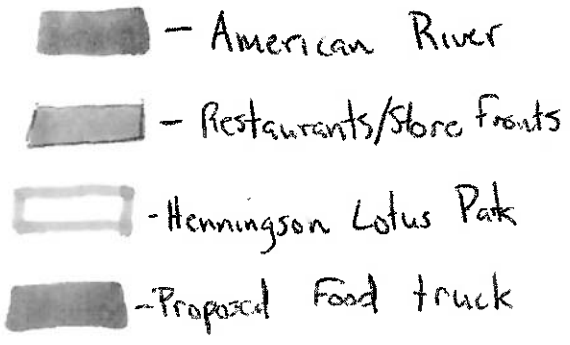 - American River
- Restaurants/Store fronts
- Henningson Lotus Park
- Proposed Food truck